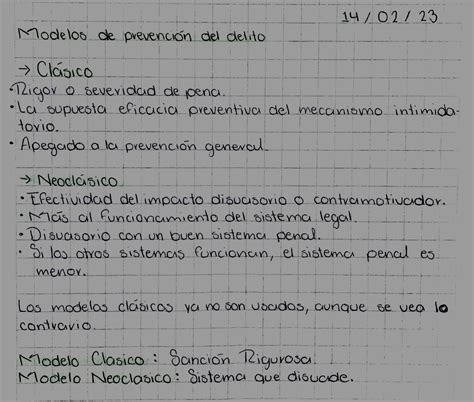 14/02/23
Modelos de prevención del delito
→ Clásico
• Rigor o severidad de pena.
• La supuesta eficacia preventiva del mecanismo intimida-
torio.
• Apegado a la prevención general.
→ Neoclásico
• Efectividad del impacto disuasorio o contramotivador.
• Más al funcionamiento del sistema legal.
• Disuasorio con un buen sistema penal.
• Si los otros sistemas funcionan, el sistema penal es
menor.
Los modelos clásicos ya no son usados, aunque se vea lo
contrario.
Modelo Clasico: Sanción Rigurosa.
Modelo Neoclasico: Sistema que disuade.